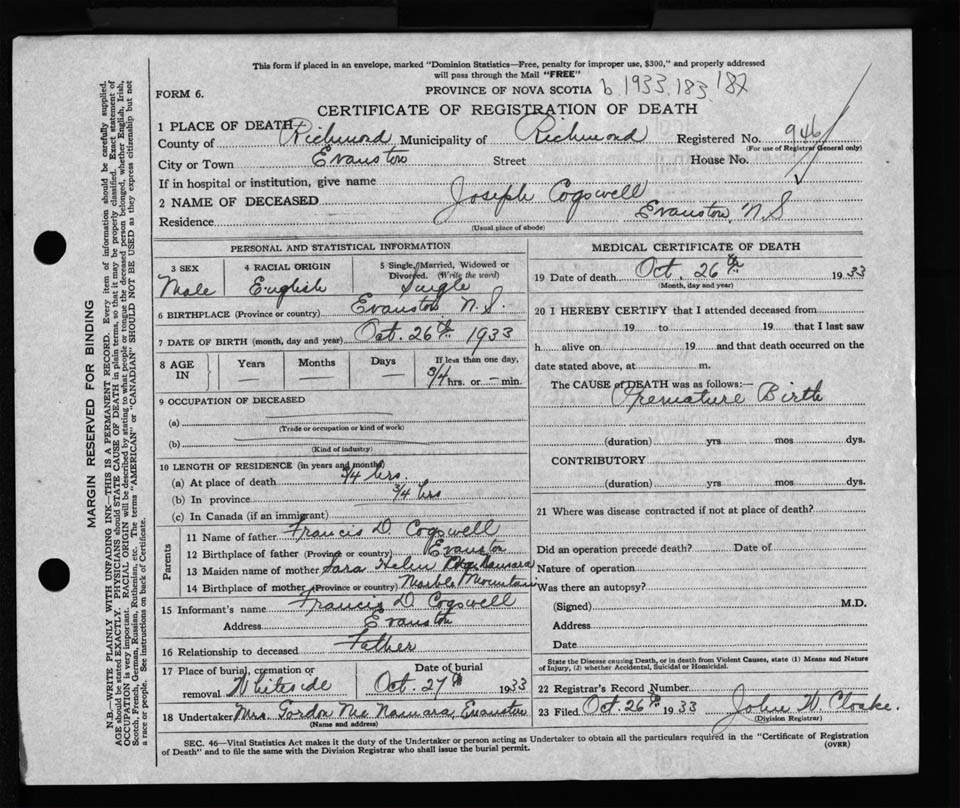 This form if placed in an envelope, marked "Dominion Statistics—Free, penalty for improper use, $300," and properly addressed
will pass through the Mail "FREE"
FORM 6.
PROVINCE OF NOVA SCOTIA b. 1933.183.187
CERTIFICATE OF REGISTRATION OF DEATH
1 PLACE OF DEATH
County of Richmond Municipality of Richmond Registered No. 946
(For use of Registrar General only)
City or Town Evanston Street House No.
If in hospital or institution, give name
2 NAME OF DECEASED Joseph Cogswell
Residence Evanston, N.S
(Usual place of abode)
PERSONAL AND STATISTICAL INFORMATION
3 SEX
Male
4 RACIAL ORIGIN
English
5 Single, Married, Widowed or
Divorced. (Write the word)
Single
6 BIRTHPLACE (Province or country) Evanston N.S.
7 DATE OF BIRTH (month, day and year) Oct. 26th 1933
8 AGE
IN
Years
—
Months
—
Days
—
If less than one day,
3/4 hrs. or — min.
9 OCCUPATION OF DECEASED
(a)
(Trade or occupation or kind of work)
(b)
(Kind of industry)
10 LENGTH OF RESIDENCE (in years and months)
(a) At place of death 3/4 hrs.
(b) In province 3/4 hrs
(c) In Canada (if an immigrant)
Parents
11 Name of father Francis D. Cogswell
12 Birthplace of father (Province or country) Evanston
13 Maiden name of mother Sara Helen McNamara
14 Birthplace of mother (Province or country) Marble Mountain
15 Informant's name Francis D Cogswell
Address Evanston
16 Relationship to deceased Father
17 Place of burial, cremation or
removal Whiteside
Date of burial
Oct. 27th 1933
18 Undertaker Mrs. Gordon Mc Namara, Evanston
(Name and address)
MEDICAL CERTIFICATE OF DEATH
19 Date of death Oct. 26th 1933
(Month, day and year)
20 I HEREBY CERTIFY that I attended deceased from
19 to 19 that I last saw
h alive on 19 and that death occurred on the
date stated above, at m.
The CAUSE of DEATH was as follows:—
Premature Birth
(duration) yrs. mos. dys.
CONTRIBUTORY
(duration) yrs. mos. dys.
21 Where was disease contracted if not at place of death?
Did an operation precede death? Date of
Nature of operation
Was there an autopsy?
(Signed) M.D.
Address
Date
State the Disease causing Death, or in death from Violent Causes, state (1) Means and Nature
of Injury, (2) whether Accidental, Suicidal or Homicidal.
22 Registrar's Record Number
23 Filed Oct. 26th 1933 John W Cloake.
(Division Registrar)
SEC. 46—Vital Statistics Act makes it the duty of the Undertaker or person acting as Undertaker to obtain all the particulars required in the "Certificate of Registration
of Death" and to file the same with the Division Registrar who shall issue the burial permit.
(OVER)
MARGIN RESERVED FOR BINDING
N.B.—WRITE PLAINLY WITH UNFADING INK—THIS IS A PERMANENT RECORD. Every item of information should be carefully supplied.
AGE should be stated EXACTLY. PHYSICIANS should STATE CAUSE OF DEATH in plain terms, so that it may be properly classified. Exact statement of
OCCUPATION is very important. RACIAL ORIGIN will be described by stating to what people or tongue the deceased person belonged, whether English, Irish,
Scotch, French, German, Russian, Ruthenian, etc. The terms "AMERICAN" or "CANADIAN" SHOULD NOT BE USED as they express citizenship but not
a race or people. See instructions on back of Certificate.